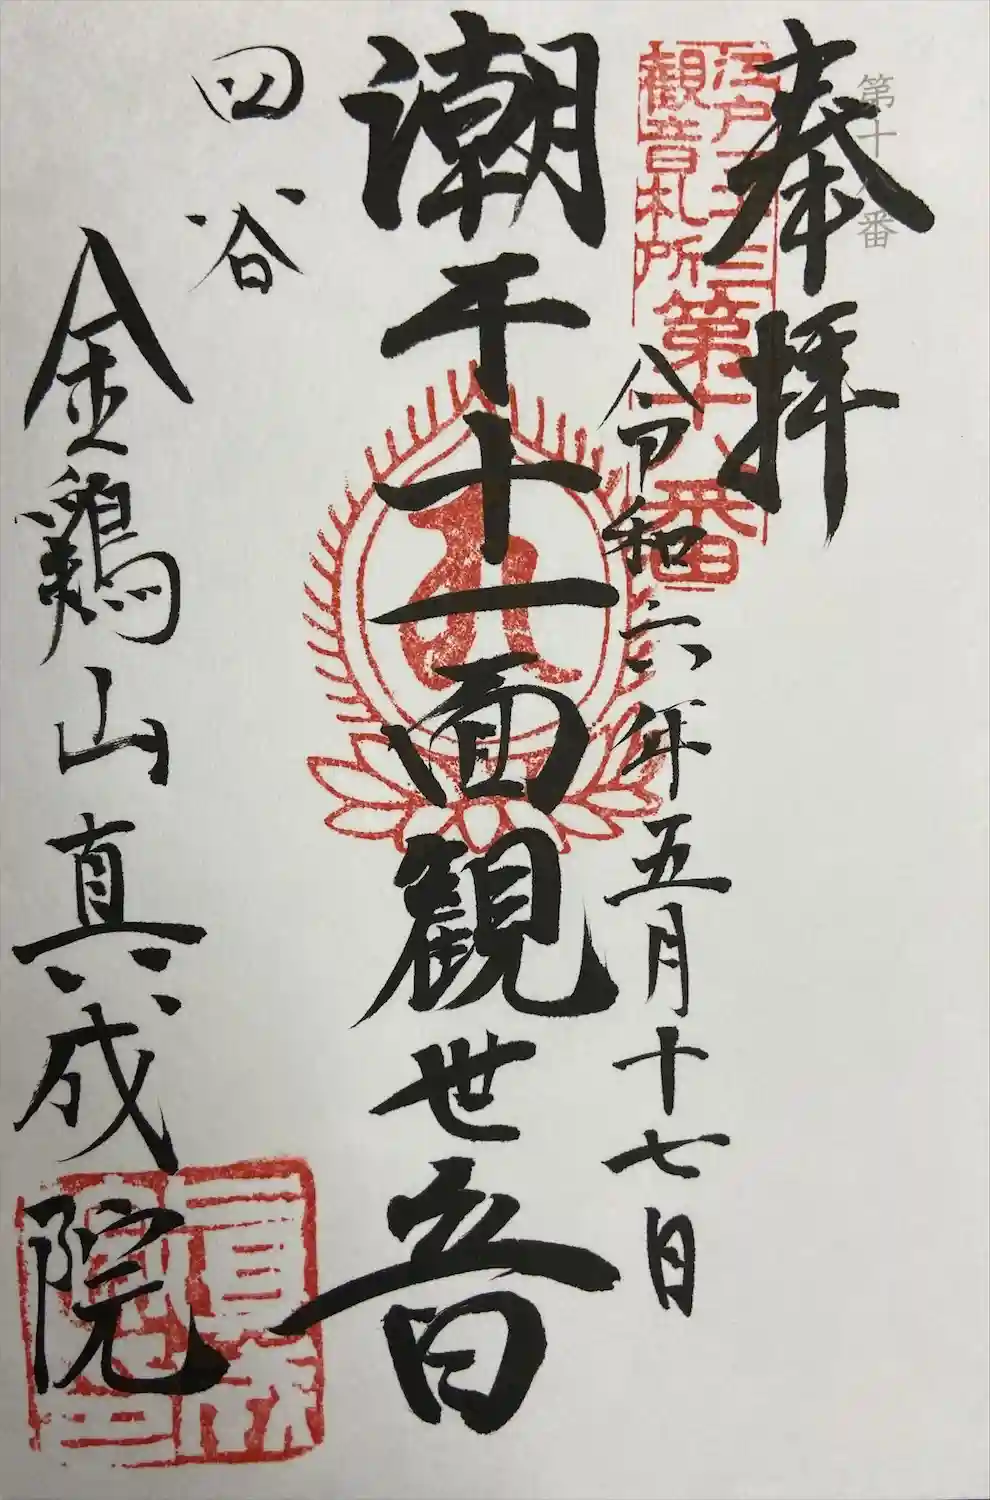 第十八番
奉拝
江戸三十三
観音札所
第十八番
令和六年五月十七日
潮干十一面観世音
四谷
金鶏山真成院